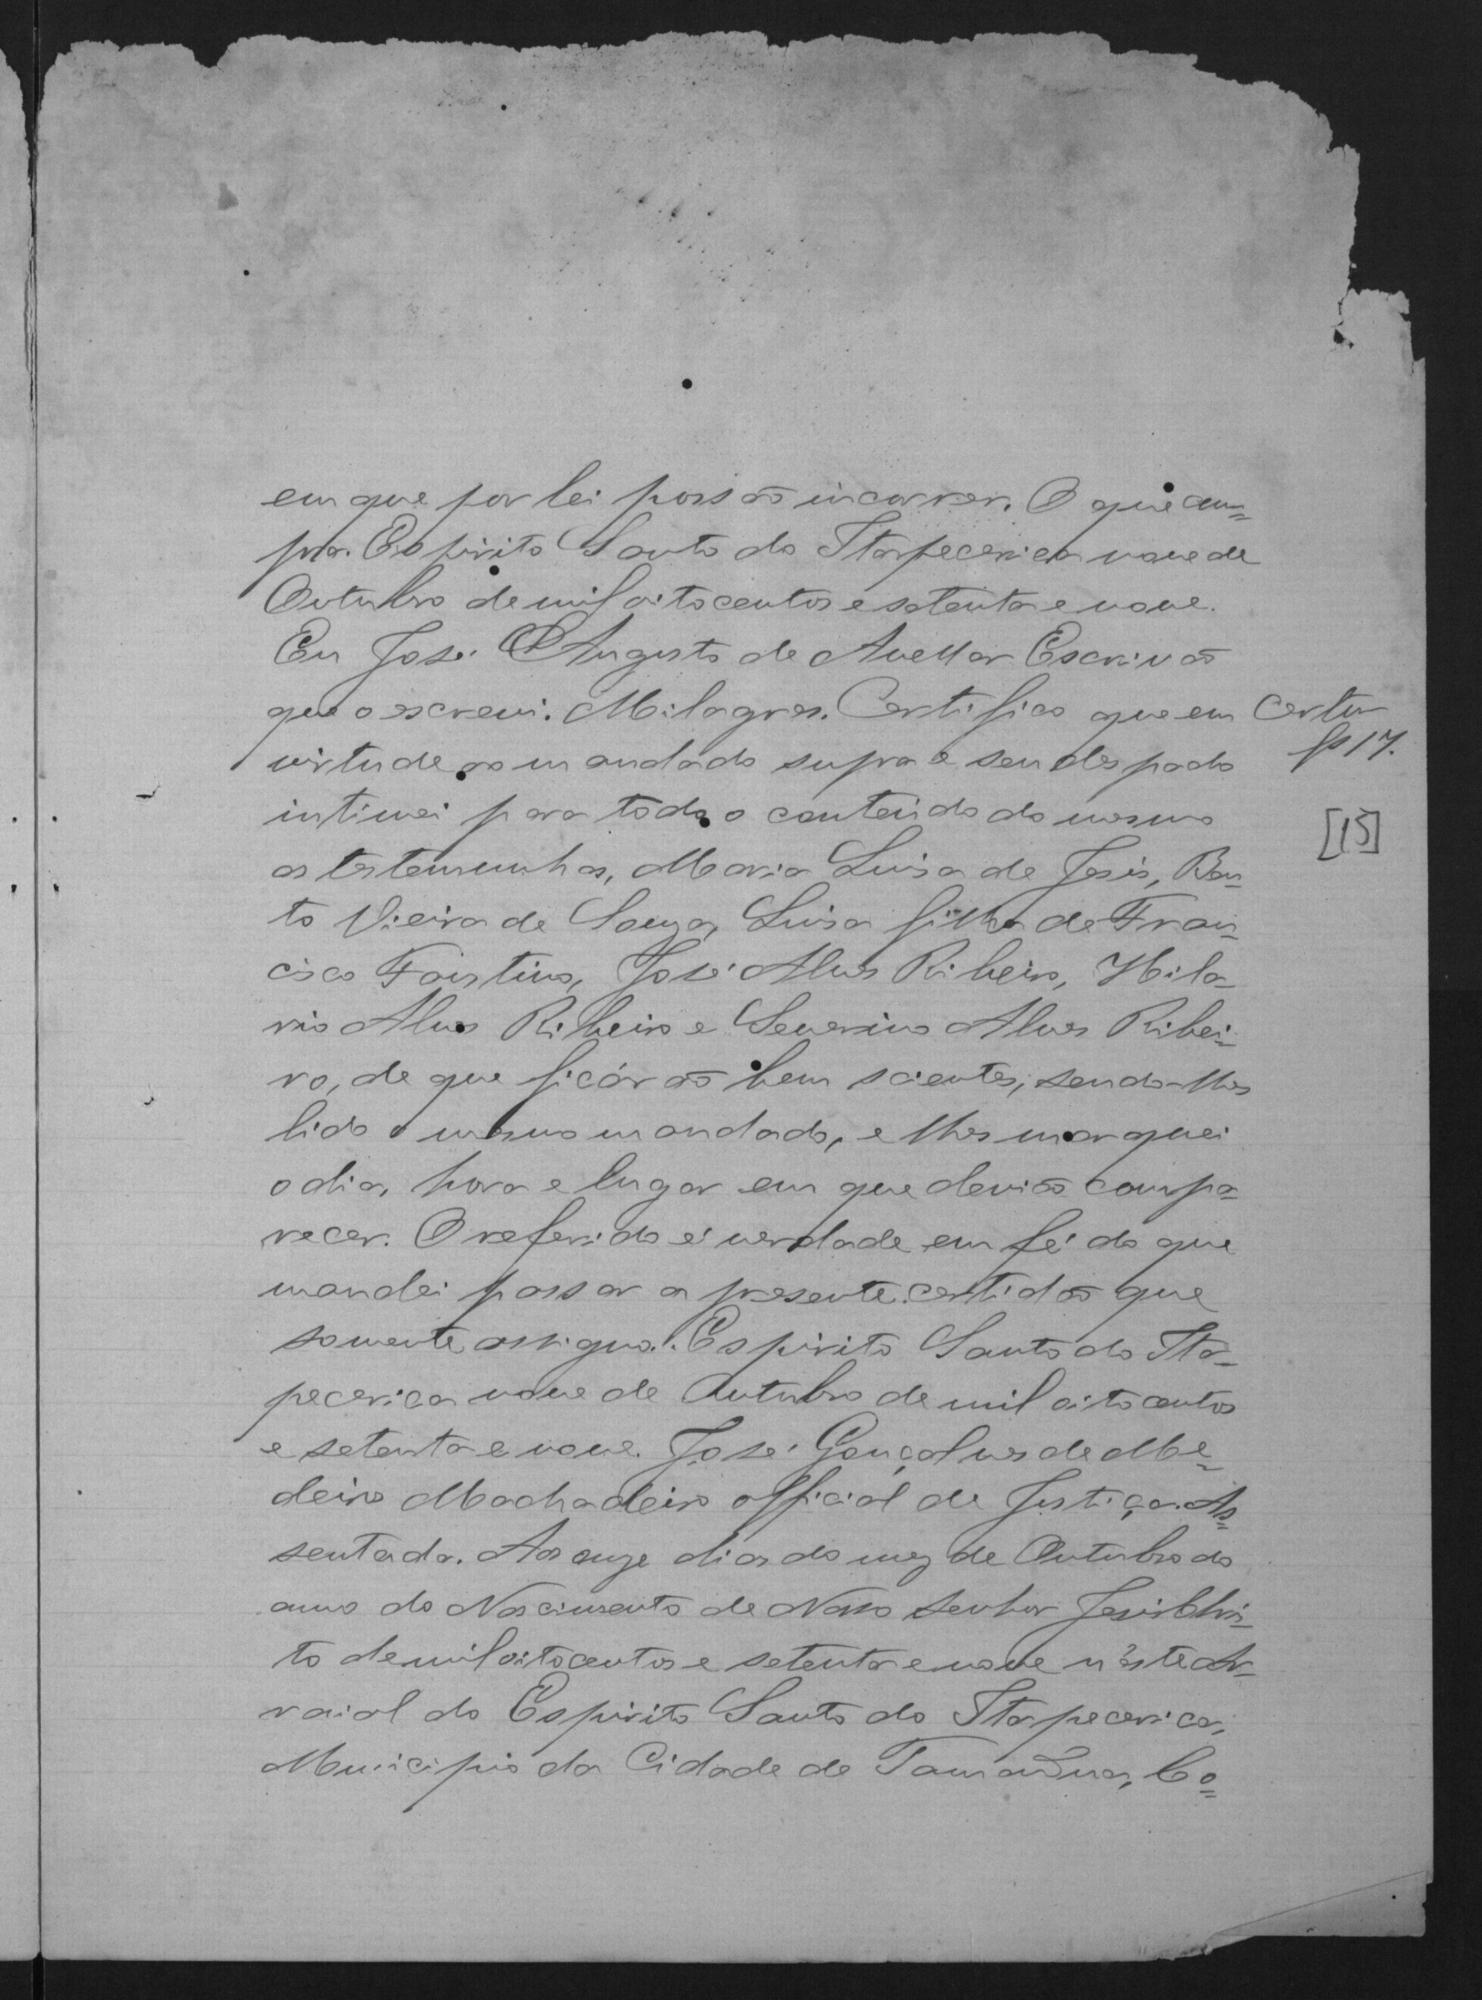 em que por lei possão incorrer. O que cum=
pra. Espirito Santo do Itapecerica nove de
Outubro de mil oitocentos e setenta e nove.
Eu José Augusto de Avellar Escrivão
que o escrevi. Milagres. Certifico que em
virtude do mandado supra e seu despado
intimei para todo o conteúdo do mesmo
as testemunhas, Maria Luisa de Jesus, Ben=
to Vieira de Souza, Luisa filha de Fran=
cisco Faustino, José Alves Ribeiro, Hila=
rio Alves Ribeiro e Severino Alves Ribei=
ro, de que ficárão bem scientes, sendo-lhes
lido o mesmo mandado, e lhes marquei
o dia, hora e lugar em que devião compa=
recer. O referido é verdade em fé do que
mandei passar a presente certidão que
somente assigno. Espirito Santo do Ita=
pecerica nove de Outubro de mil oitocentos
e setenta e nove. José Gonçalves de Me=
deiro Machadeiro official de Justiça. As=
sentada. Aos onze dias do mez de Outubro do
anno do Nascimento de Nosso Senhor Jesus Chris=
to de mil oitocentos e setenta e nove n'este Ar=
raial do Espirito Santo do Itapecerica,
Municipio da Cidade de Tamanduá, Co=
Certam
fs 17.
[15]